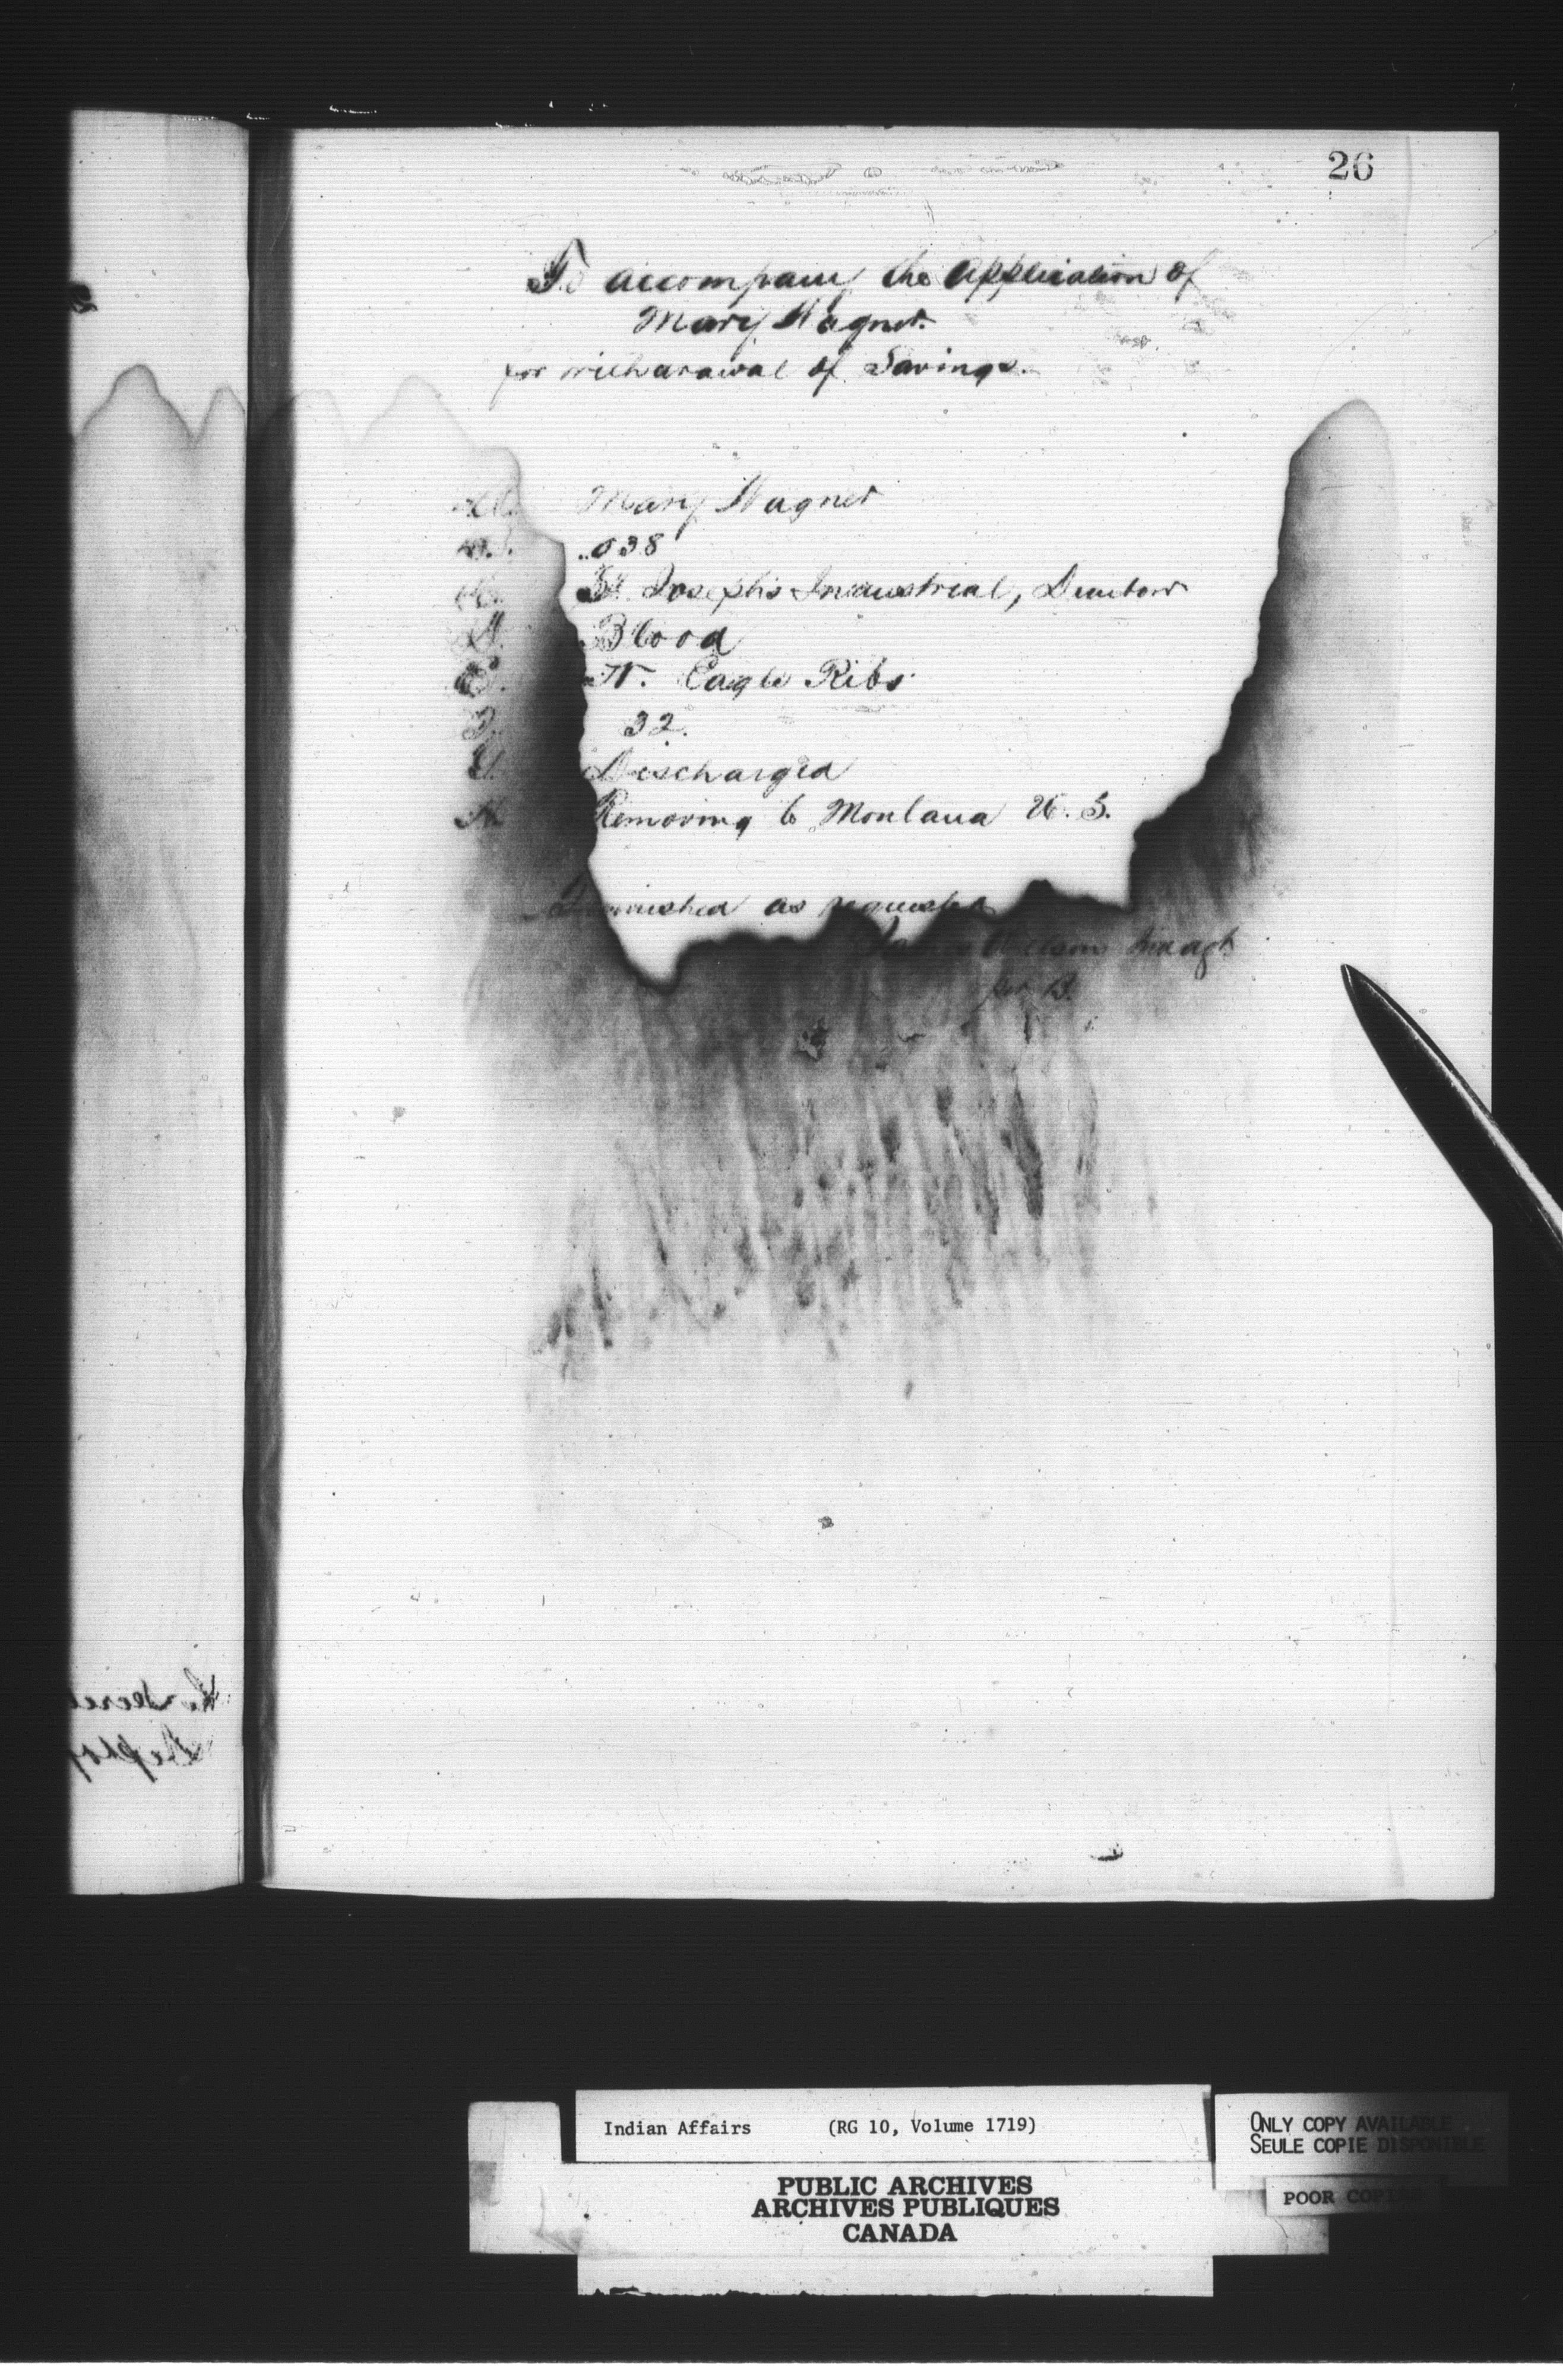 26
To accompany the application of
Mary Wagner
for withdrawal of Savings.
A. Mary Wagner
038
St. Joseph's Industrial, Dunbow
D. Blood
E. N. Eagle Ribs
32.
G. Discharged
H. Removing to Montana U. S.
Furnished as requested
Wilson Ind agt
per B.
Indian Affairs (RG 10, Volume 1719)
PUBLIC ARCHIVES
ARCHIVES PUBLIQUES
CANADA
ONLY COPY AVAILABLE
SEULE COPIE DISPONIBLE
POOR COPIE